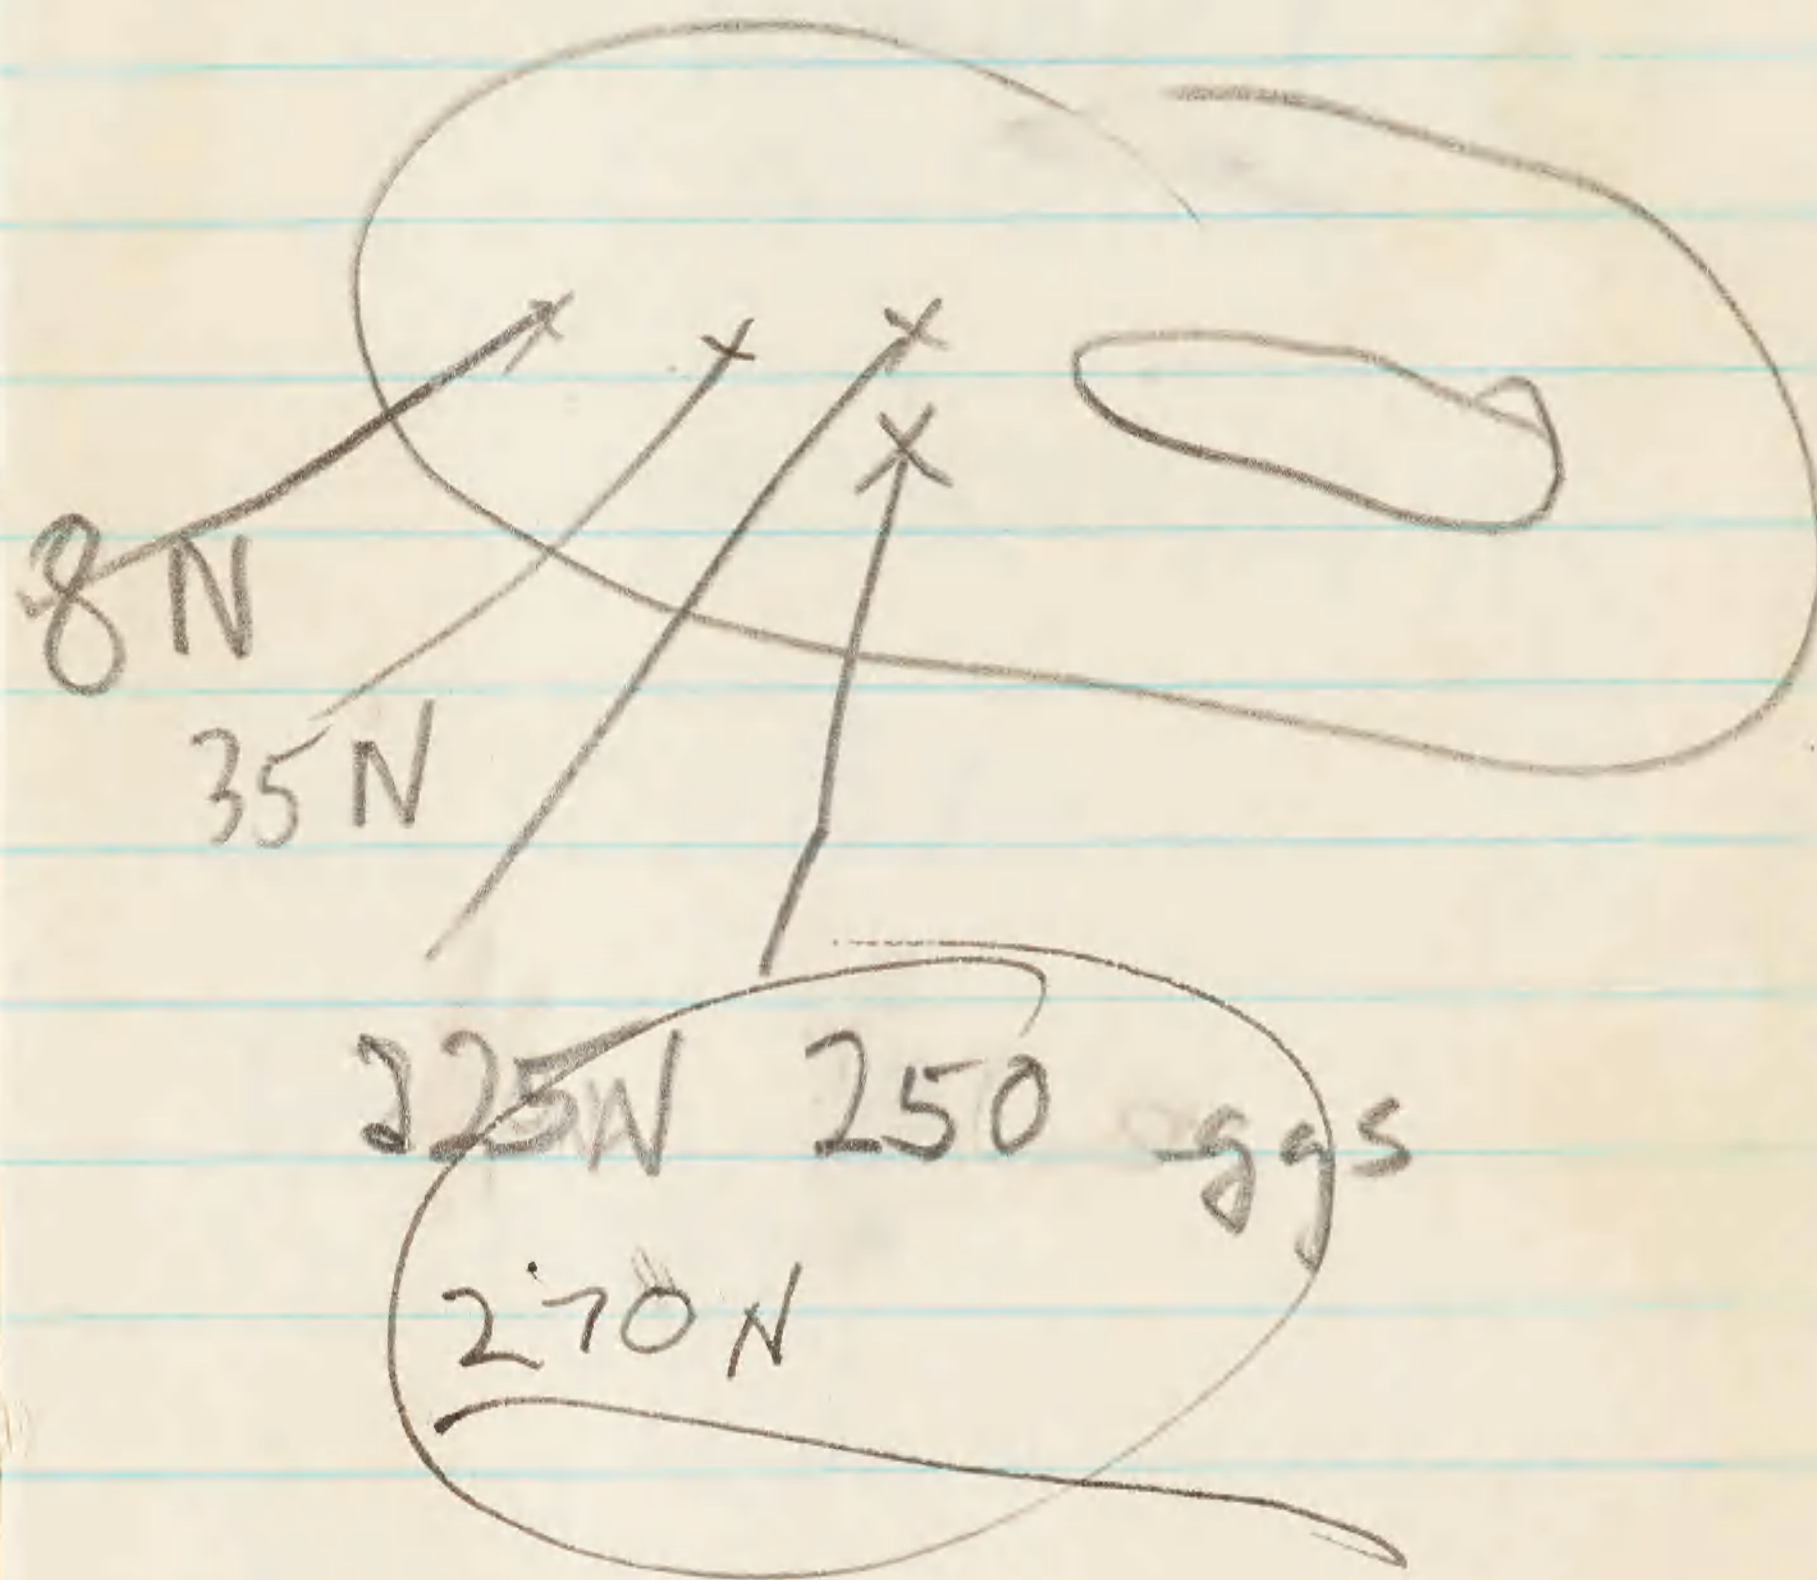 8 N
35 N
225N 250 eggs
270 N